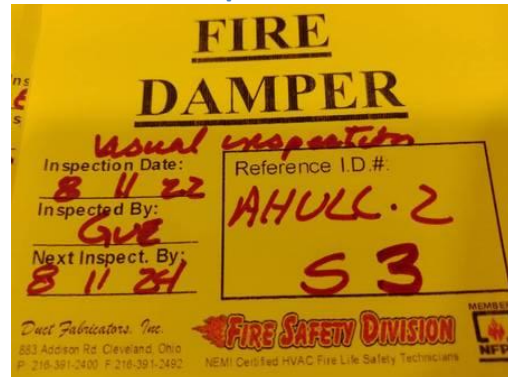 FIRE
DAMPER
visual inspection
Inspection Date:
8 11 22
Reference I.D.#:
Inspected By:
GVE
AHULL-2
Next Inspect. By:
8 11 24
S3
Duct Fabricators, Inc.
883 Addison Rd. Cleveland, Ohio
P. 216-391-2400 F. 216-391-2492
FIRE SAFETY DIVISION
NEMI Certified HVAC Fire Life Safety Technicians
MEMBER
NFP